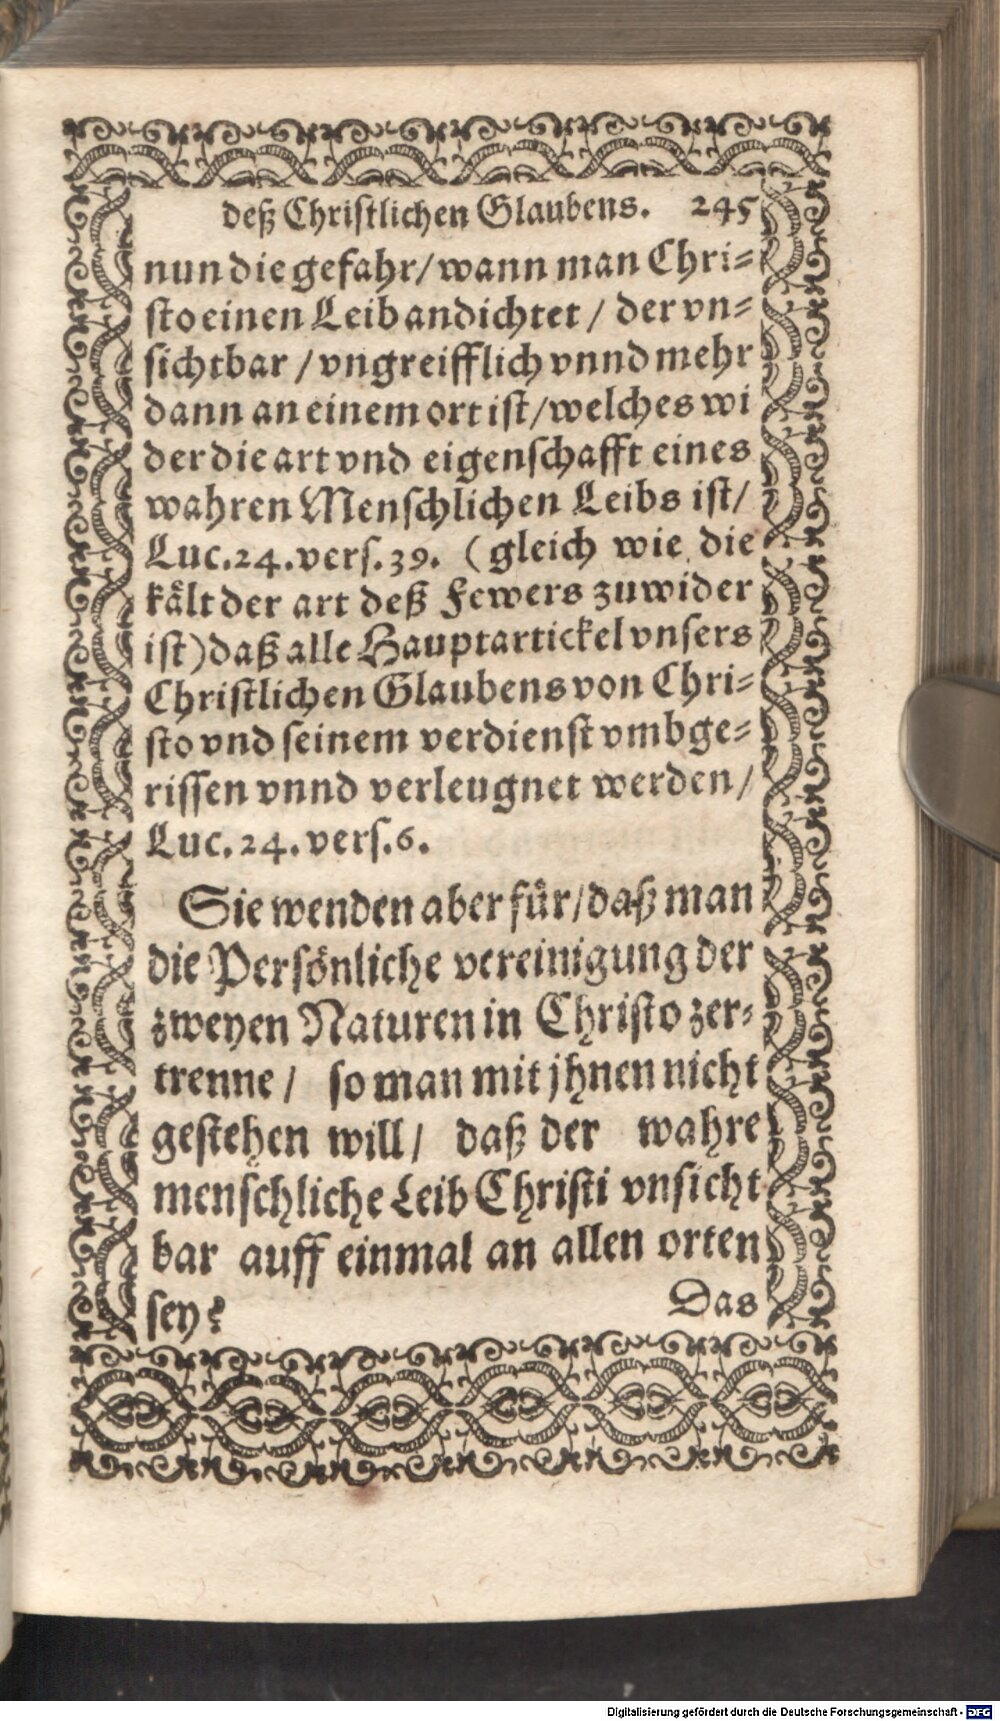 deß Christlichen Glaubens. 245
nun die gefahr/ wann man Chri-
sto einen Leib andichtet / der vn-
sichtbar / vngreifflich vnnd mehr
dann an einem ort ist/ welches wi
der die art vnd eigenschafft eines
wahren Menschlichen Leibs ist/
Luc. 24. vers. 39. (gleich wie die
kält der art deß Fewers zuwider
ist) daß alle Hauptartickel vnsers
Christlichen Glaubens von Chri-
sto vnd seinem verdienst vmbge-
rissen vnnd verleugnet werden/
Luc. 24. vers. 6.
Sie wenden aber für/ daß man
die Persönliche vereinigung der
zweyen Naturen in Christo zer-
trenne / so man mit jhnen nicht
gestehen will/ daß der wahre
menschliche Leib Christi vnsicht
bar auff einmal an allen orten
sey?
Das
Digitalisierung gefördert durch die Deutsche Forschungsgemeinschaft - DFG